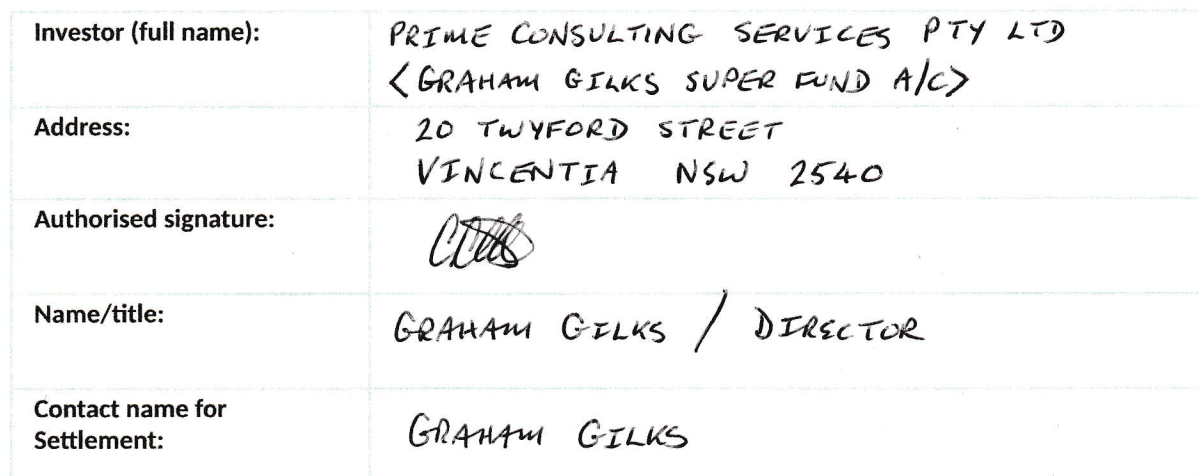 Investor (full name):
PRIME CONSULTING SERVICES PTY LTD
<GRAHAM GILKS SUPER FUND A/C>
Address:
20 TWYFORD STREET
VINCENTIA NSW 2540
Authorised signature:
Name/title:
GRAHAM GILKS / DIRECTOR
Contact name for
Settlement:
GRAHAM GILKS